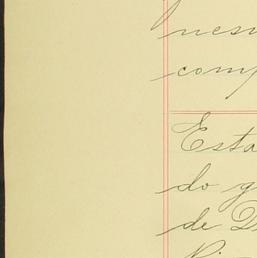 nesm
comp
Esta
do g
de D